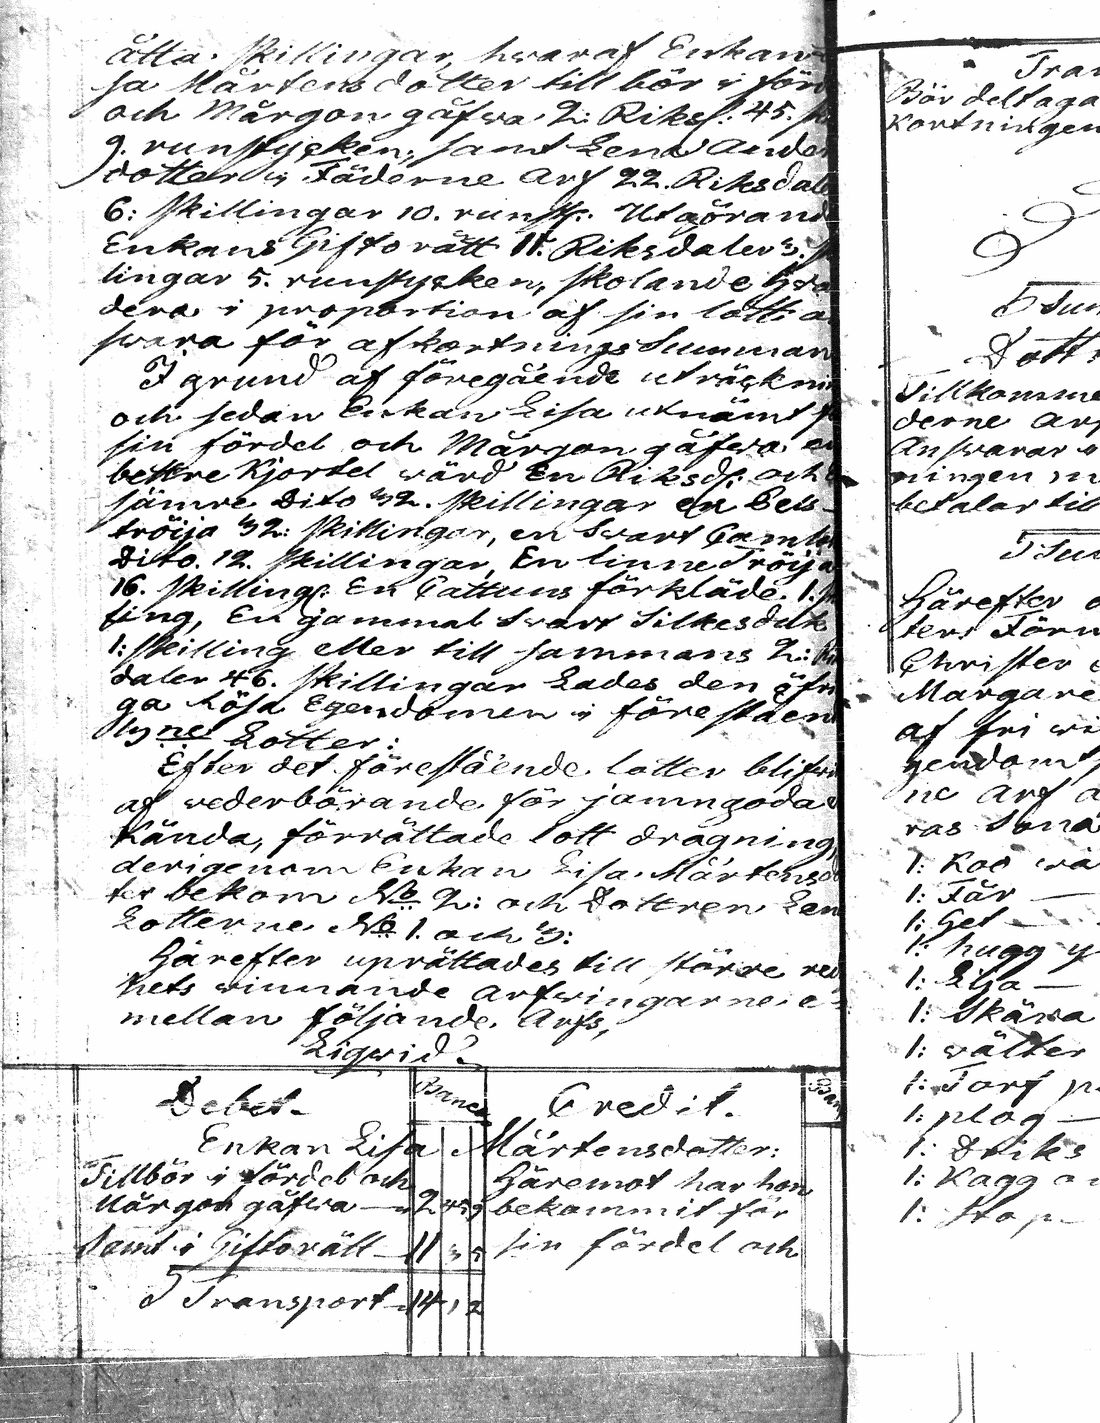 åtta skillingar, hwaraf Enkan
sa Mårtensdotter till bör i för
och Mårgon gåfwa 2: Riksd: 45. sk
9. runstycken, samt Lena Ander
dotter i Fäderne Arf 22. Riksdal
6: skillingar 10. runst: Utgörand
Enkans Giftorätt 11. Riksdaler 3. sk
lingar 5. runstycken, skolande hwa
dera i proportion af sin lott a
swara för afkortnings Summan
I grund af föregående uträckni
och sedan Enkan Lisa utnämt
sin fördel och Mårgon gåfwa en
bettre Kjortel wärd En Riksd: och
sämre Dito 32. skillingar en
tröija 32: skillingar, en Swart
Dito. 12. skillingar, En linne Tröija
16. skilling: En Cattuns förkläde. 1. sk
ling, En gammal Swart Silkesduk
1: skilling eller till sammans 2: Rik
daler 46. skillingar Lades den öfri
ga lösa Egendomen i förestaen
Lotter:
Efter det förestående lotter blifwi
af wederbörande för jamngoda
kända, förrättade lott dragning,
derigenom Enkan Lisa Mårtensd
ter bekom No 2: och Dottren Len
Lotterne No 1. och 3:
Härefter uprättades till större re
hets winnande Arfwingarne e
mellan följande. Arfs,
Liqwid
Debet Banco Credit. Banc
Enkan Lisa Mårtensdotter:
Tillbör i fördel och
Mårgon gåfwa 2 45 9
Samt i Giftorätt 11 3 5
Transport 14 1 2
Häremot har hon
bekommit för
sin fördel och
Tran
Bör deltaga
kortningen
Sum
Dott
Tillkomme
derne Arf
Answarar
ningen m
betalar till
Sum
Härefter
ters Förm
Christer
Margare
af fri wi
gendoms
ne Arf
ras Sonä
1: Koo wä
1: Får
1: Get
1: hugg y
1: Lija
1: Skära
1: wälter
1: Torf
1: plog
1: Driks
1: Kagg
1: Stop